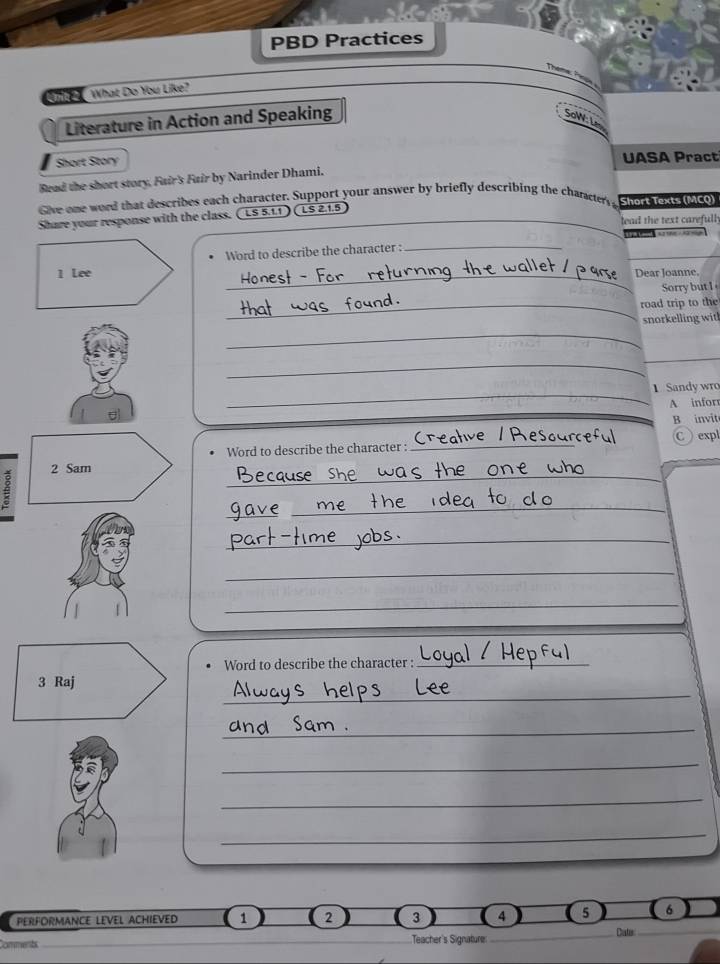 PBD Practices
Unit 2 What Do You Like?
Theme: People
Literature in Action and Speaking
SoW:
Short Story
Read the short story, Fair's Fair by Narinder Dhami.
Give one word that describes each character. Support your answer by briefly describing the character.
Share your response with the class. LS 5.1.1 LS 2.1.5
1 Lee
• Word to describe the character :
Honest - For returning the wallet / parse
that was found.
2 Sam
• Word to describe the character : Creative / Resourceful
Because she was the one who
gave me the idea to do
part-time jobs.
3 Raj
• Word to describe the character : Loyal / Hepful
Always helps Lee
and Sam.
Textbook
PERFORMANCE LEVEL ACHIEVED 1 2 3 4 5 6
Comments Teacher's Signature: Date:
UASA Pract
Short Texts (MCQ)
Read the text carefully
Dear Joanne,
Sorry but I
road trip to the
snorkelling wit
1 Sandy wro
A infor
B invit
C expl